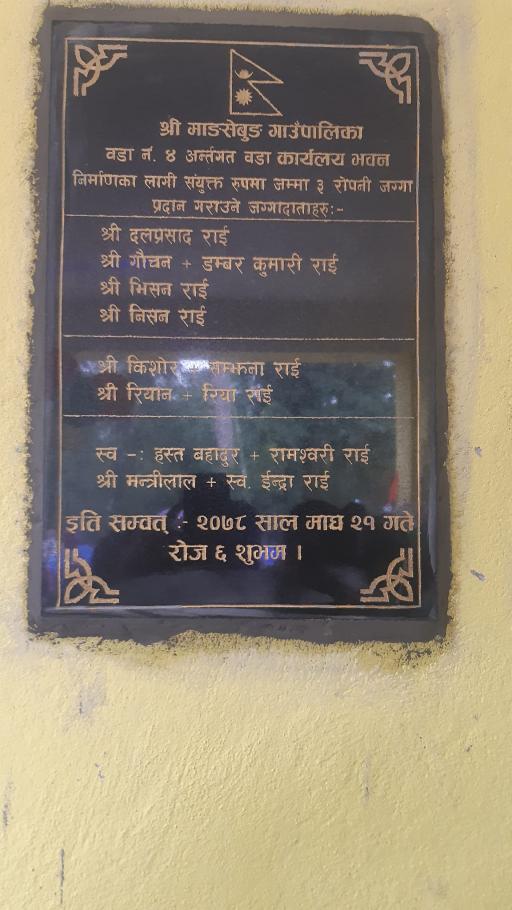 श्री माङसेबुङ गाउँपालिका
वडा नं. ४ अर्न्तगत वडा कार्यलय भवन
निर्माणका लागी संयुक्त रुपमा जम्मा ३ रोपनी जग्गा
प्रदान गराउने जग्गादाताहरु:-
श्री दलप्रसाद राई
श्री गौचन + डम्बर कुमारी राई
श्री भिसन राई
श्री निसन राई
श्री किशोर + सम्झना राई
श्री रियान + रिया राई
स्व -: हस्त बहादुर + रामश्वरी राई
श्री मन्त्रीलाल + स्व. ईन्द्रा राई
इति सम्वत् :- २०७८ साल माघ २१ गते
रोज ६ शुभम ।